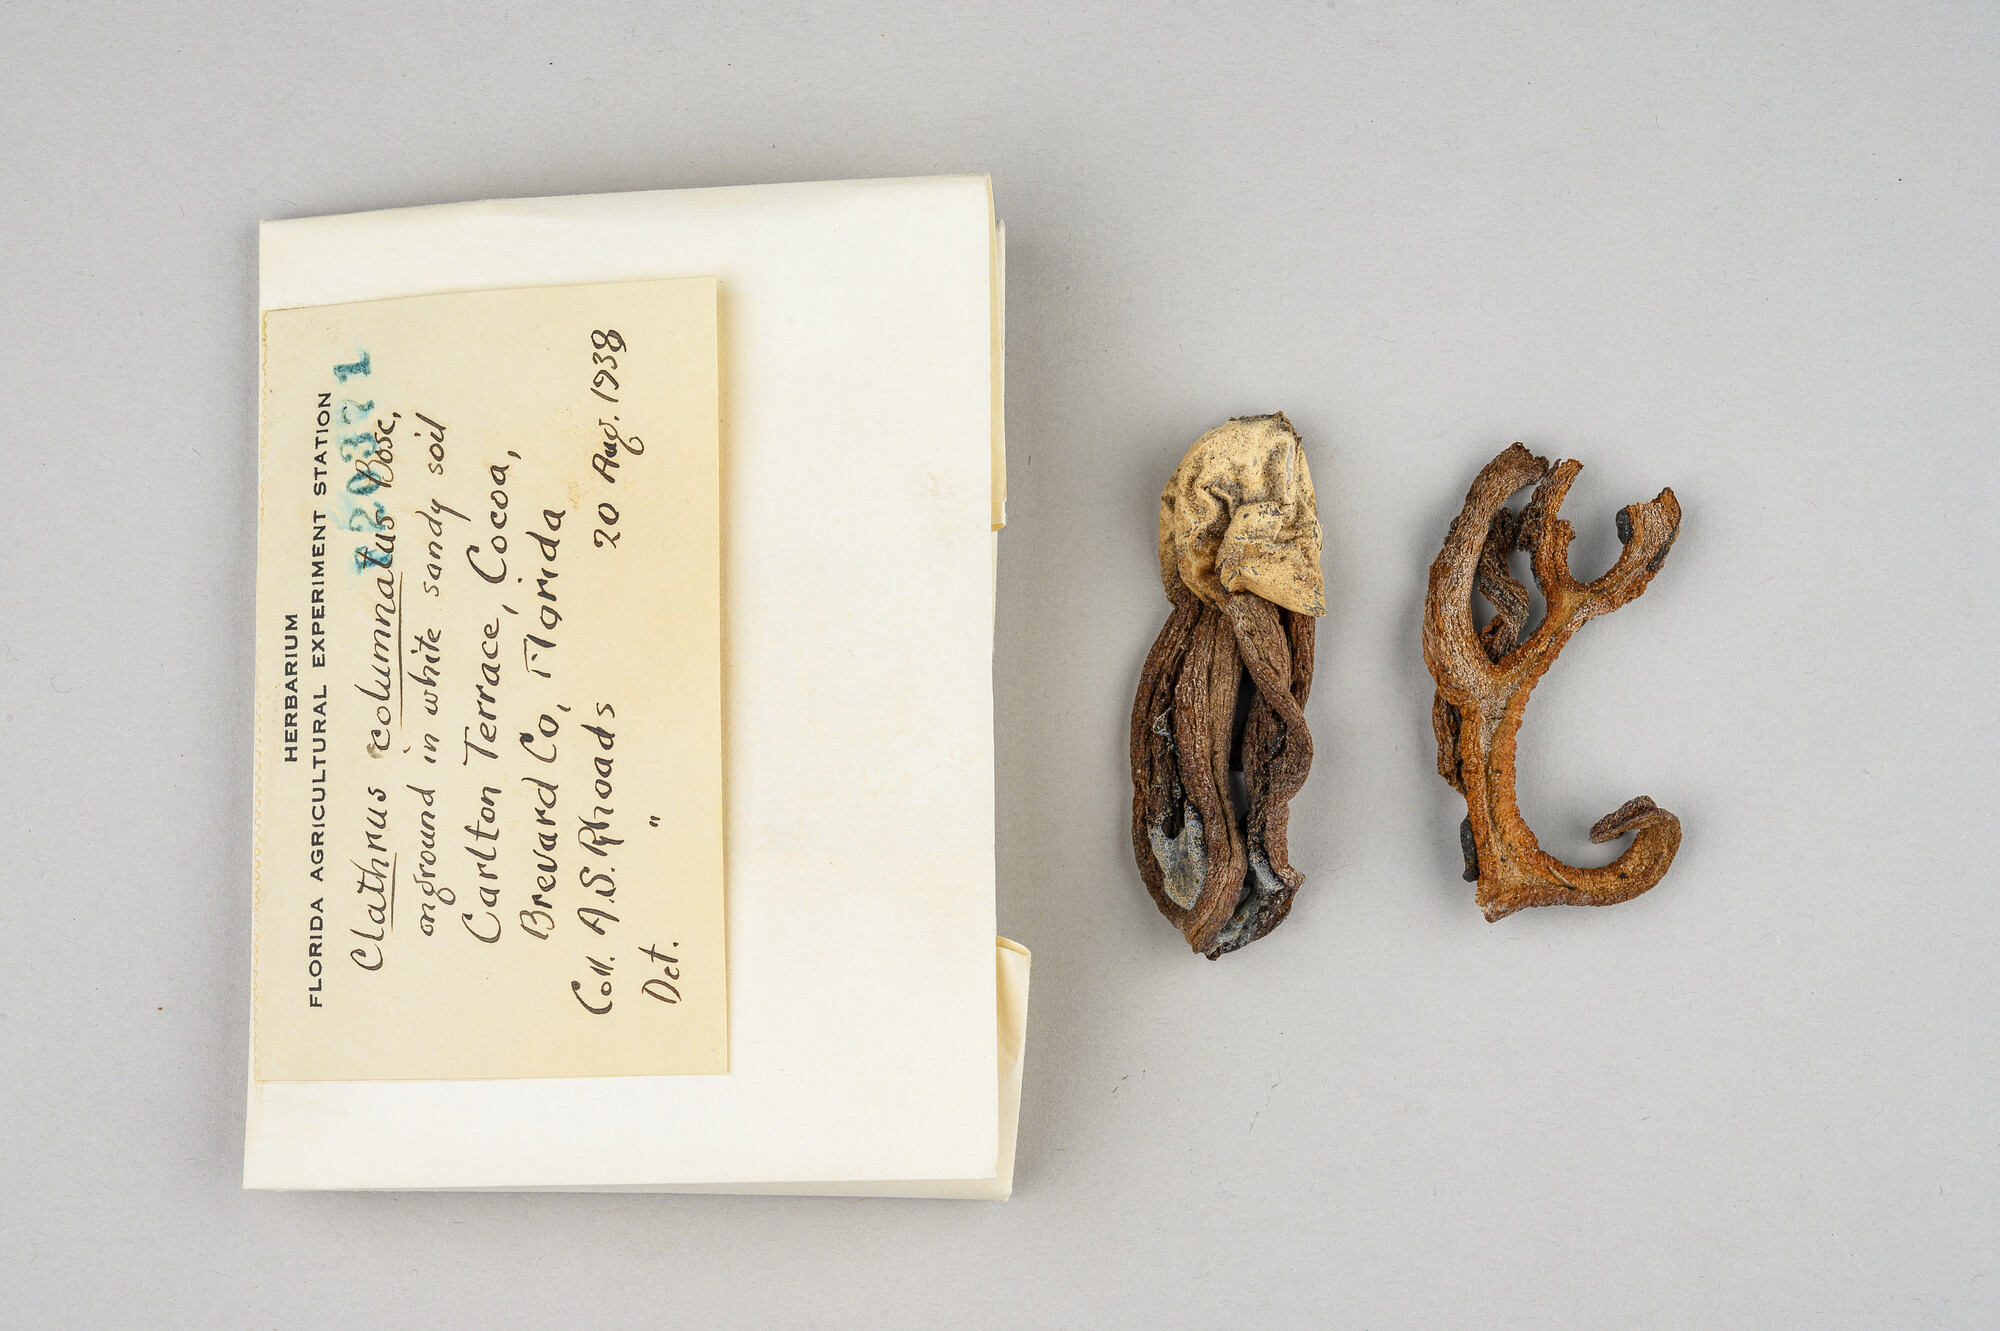 HERBARIUM
FLORIDA AGRICULTURAL EXPERIMENT STATION
Clathrus columnatus Bosc,
on ground in white sandy soil
Carlton Terrace, Cocoa,
Brevard Co, Florida
Coll. A.S. Rhoads 20 Aug. 1938
Det. "